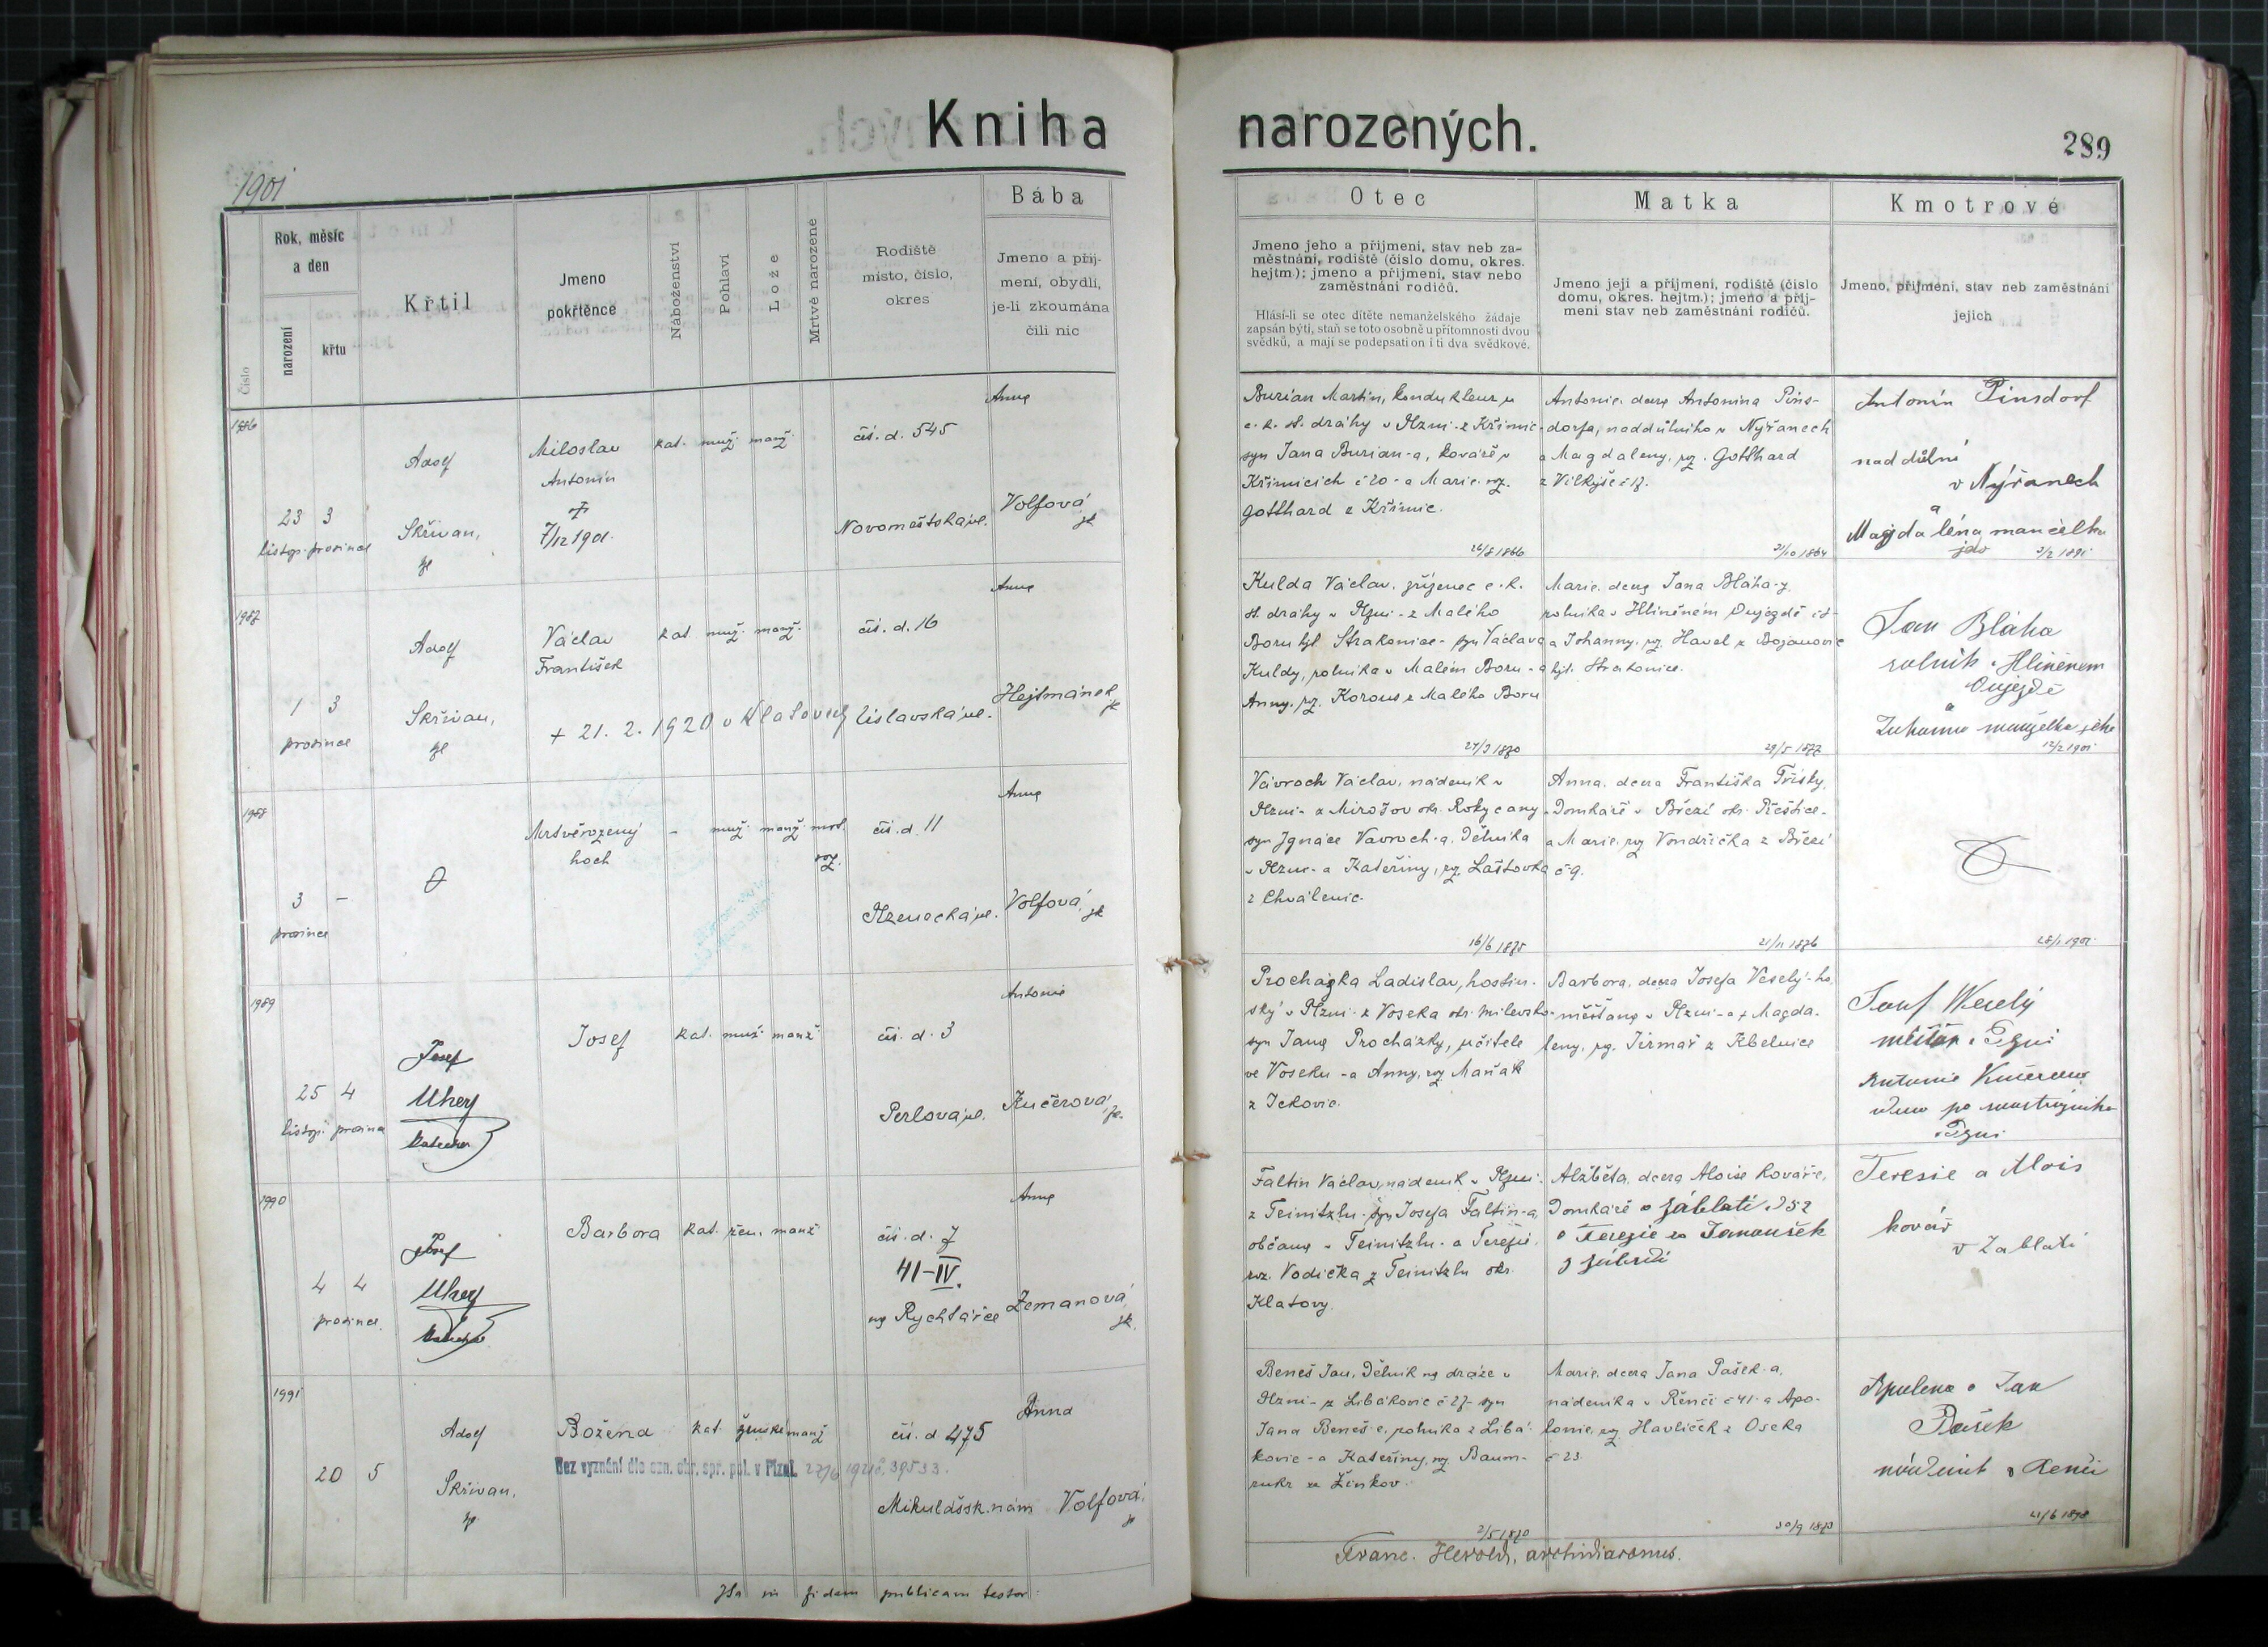 Kniha
narozených.
289
1901
Číslo
Rok, měsíc
a den
narození
křtu
Křtil
Jmeno
pokřtěnce
Náboženství
Pohlaví
Lože
Mrtvě narozene
Rodiště
místo, číslo,
okres
Bába
Jmeno a příj-
mení, obydlí,
je-li zkoumána
čili nic
Otec
Jmeno jeho a příjmení, stav neb za-
městnání, rodiště (číslo domu, okres.
hejtm.); jmeno a příjmení, stav nebo
zaměstnání rodičů.
Hlásí-li se otec dítěte nemanželského žádaje
zapsán býti, staň se toto osobně u přítomnosti dvou
svědků, a mají se podepsati on i ti dva svědkové.
Matka
Jmeno její a příjmení, rodiště (číslo
domu, okres. hejtm.); jmeno a příj-
mení stav neb zaměstnání rodičů.
Kmotrové
Jmeno, příjmení, stav neb zaměstnání
jejich
1986
23 3
listop. prosince
Adolf
Skřivan,
Miloslav
Antonín
7/12 1901.
kat. muž. manž.
čís. d. 545
Novoměstská ul.
Anna
Volfová
Burian Martin, kondukteur u
c. k. st. dráhy v Plzni - z Křimic -
syn Jana Burian-a, kováře v
Křimicích č 20 - a Marie roz.
Gotthard z Křimic.
26/8 1866
Antonie, dcera Antonína Pins-
dorfa, naddůlního v Nýřanech
a Magdaleny, roz. Gotthard
z Vilkýše č 17.
21/10 1864
Antonín Pinsdorf
naddůlní
v Nýřanech
a
Magdaléna manželka
jeho
1987
1 3
prosince
Adolf
Skřivan,
Václav
František
+ 21. 2. 1920 v Klatovech
kat. muž. manž.
čís. d. 16
Anna
Hejtmánek
Kulda Václav, zřízenec c. k.
st. dráhy v Plzni - z Malého
Boru hjt. Strakonice - syn Václava
Kuldy, rolníka v Malém Boru - a
Anny, roz. Korous z Malého Boru
27/9 1870
Marie, dcera Jana Bláha-y,
rolníka v Hliněném Oujezdě
a Johanny, roz. Havel z Bojanovic
hjt. Strakonice.
29/5 1877
Jan Bláha
rolník v Hliněném
Oujezdě
a
Johanna manželka jeho
12/2 1901
1988
3 -
prosince
Mrtvěrozený
hoch
- muž. manž. mrt.
roz.
čís. d. 11
Plzenecká ul.
Anna
Volfová
Vávroch Václav, nádeník v
Plzni - z Mirošov okr. Rokycany -
syn Ignáce Vavroch-a, dělníka
v Plzni - a Kateřiny, roz. Laštovka
z Chválenic.
16/6 1875
Anna, dcera Františka Třísky,
domkáře v Březí okr. Přeštice -
a Marie, roz. Vondřička z Březí
č 9.
21/11 1876
28/1 1901
1989
25 4
listop. prosince
Josef
Uhery
katecheta
Josef
kat. muž. manž
čís. d. 3
Perlova ul.
Antonie
Kučerová
Procházka Ladislav, hostin-
ský v Plzni - z Voseka okr. milevsko -
syn Jana Procházky, učitele
ve Voseku - a Anny, roz. Maršák
z Jckovic.
Barbora, dcera Josefa Veselý-ho,
měšťana v Plzni - a + Magda-
leny, roz. Jirmař z Kbelnice
Josef Weselý
měšťan v Plzni
Antonie
v Plzni
1990
4 4
prosince.
Josef
Uhery
katecheta
Barbora
kat. žen. manž
čís. d. 7
41-IV.
na Rychtářce
Anna
Zemanová
Faltín Václav, nádeník v Plzni -
z Teinitzlu - syn Josefa Faltín-a,
občana v Teinitzlu - a Terezie,
roz. Vodička z Teinitzlu okr.
Klatovy.
Alžběta, dcera Aloise Kováře,
domkáře v Záblatí č 52
a Terezie roz Janoušek
z Záblatí
Teresie a Alois
kovář
v Zablatí
1991
20 5
Adolf
Skřivan,
Božena
Bez vyznání dle ozn. okr. spr. pol. v Plzni 27/6 1921 č. 39533.
kat. ženské manž
čís. d 475
Mikulášsk. nám
Anna
Volfová
Beneš Jan, dělník na dráze v
Plzni - z Libákovic č 27 - syn
Jana Beneš-e, rolníka z Libá-
kovic - a Kateřiny, roz. Baum-
rukr ze Žinkov.
2/5 1870
Marie, dcera Jana Pašek-a,
nádeníka v Řenčí č 41 - a Apo-
lonie, roz. Havlíček z Oseka
č 23.
30/9 1873
Apolena a Jan
Pašek
nádeník v Řenči
21/6 1898
Ita in fidem publicam testor:
Franc. Herold, archidiaconus.